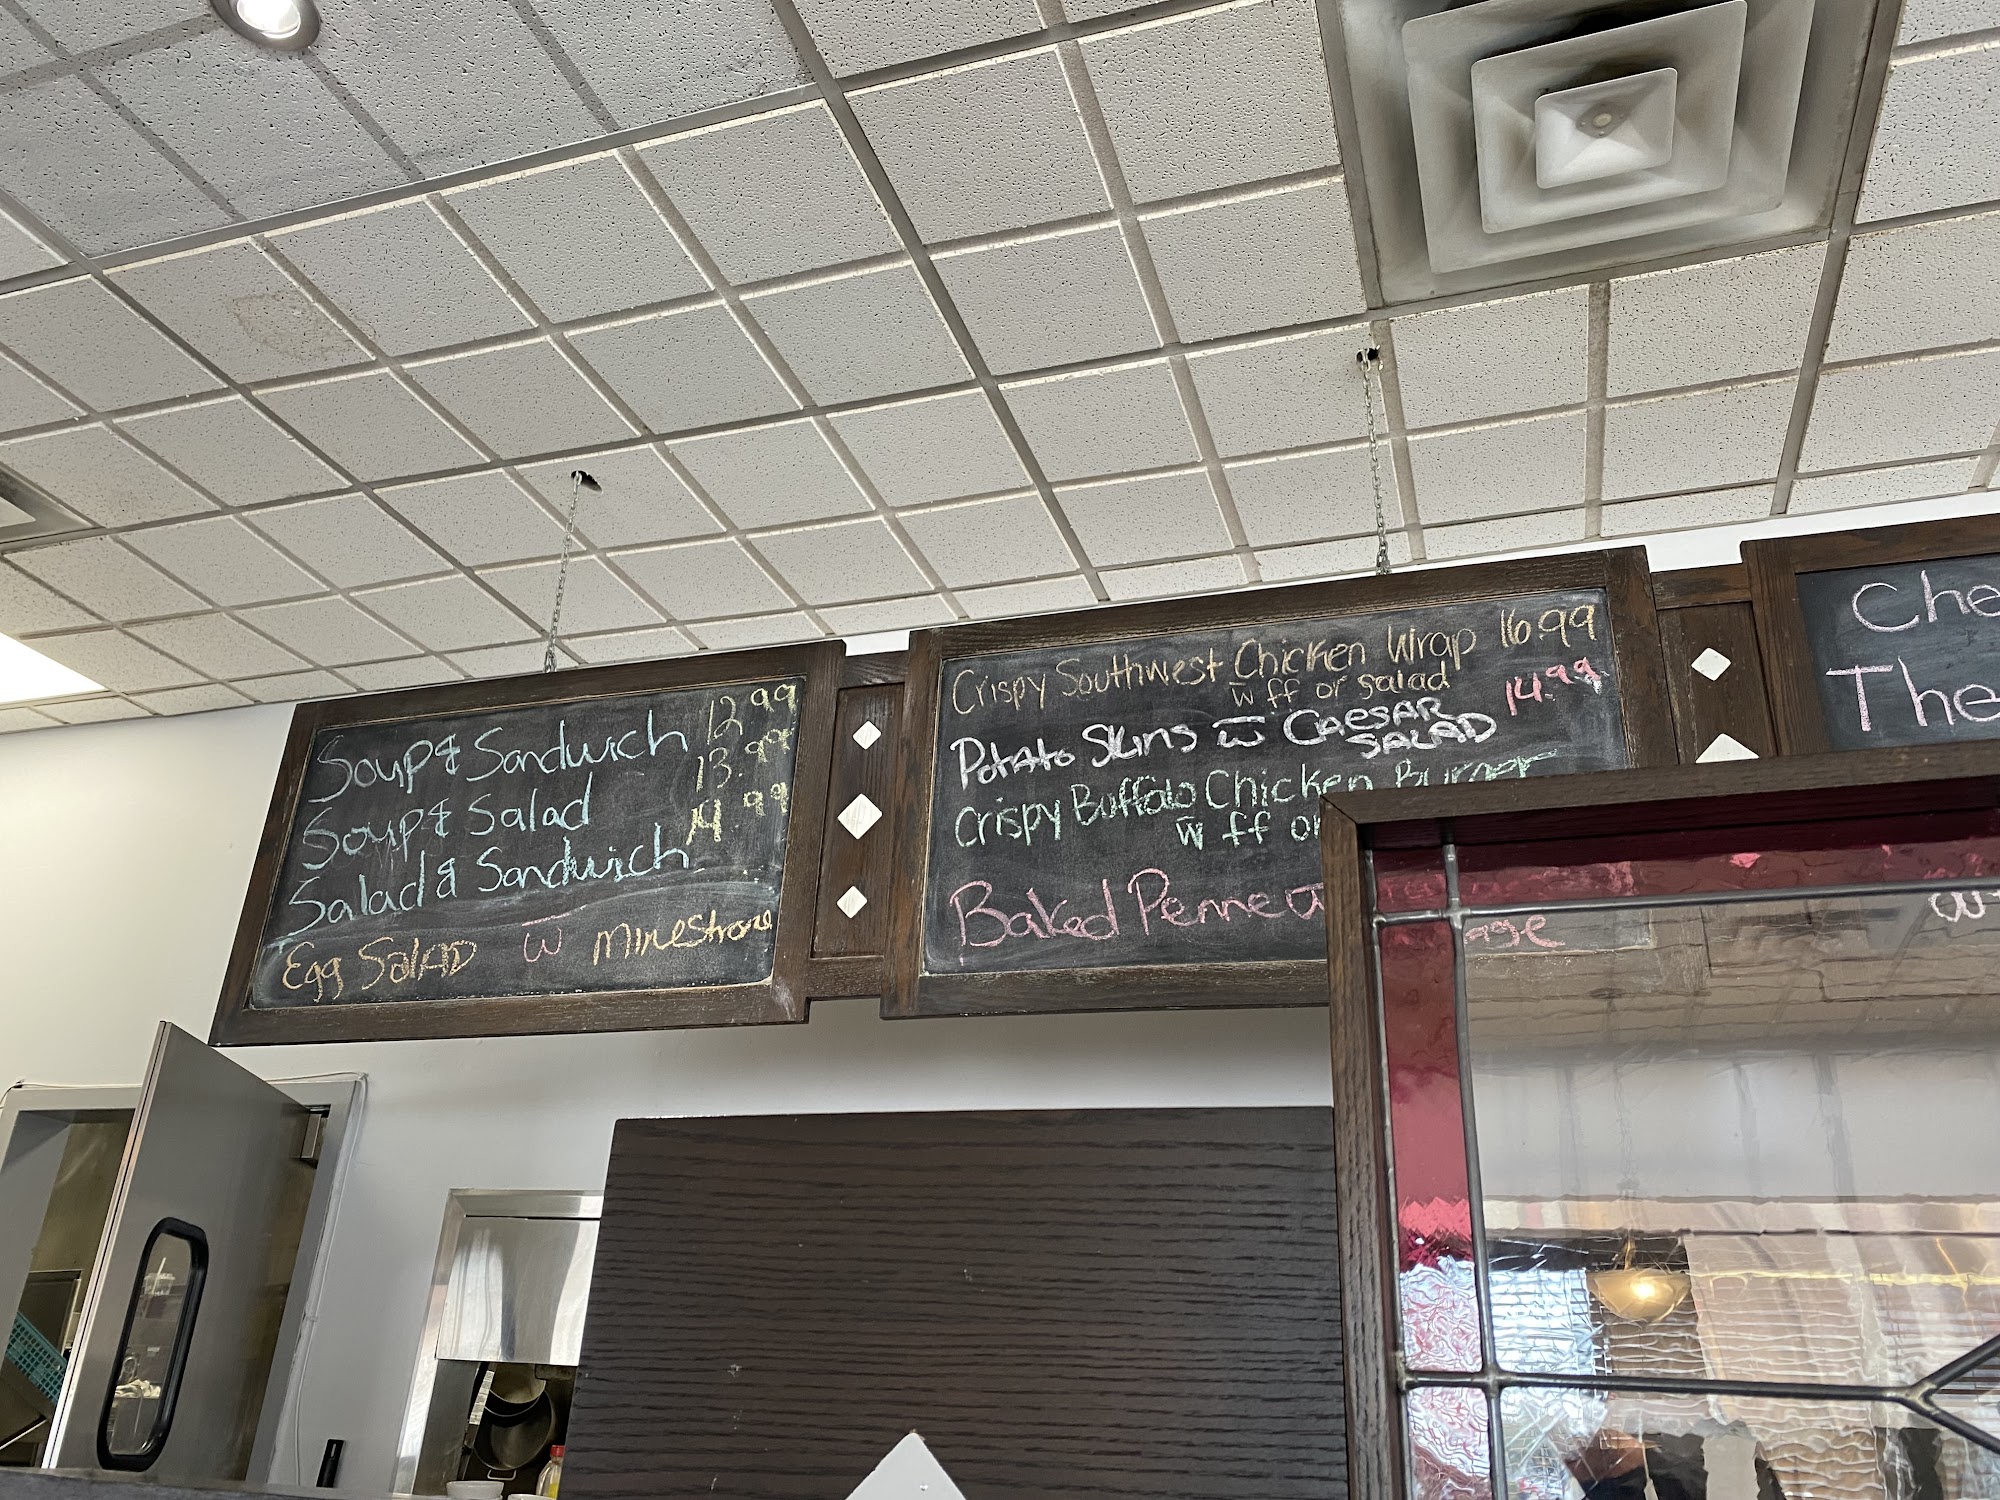 Soup & Sandwich 12.99
Soup & Salad 13.99
Salad & Sandwich 14.99
Egg Salad w Minestrone
Crispy Southwest Chicken Wrap 16.99
w ff or salad
Potato Skins w Caesar 14.99
Salad
Crispy Buffalo Chicken Burger
w ff or
Baked Penne w
Che
The